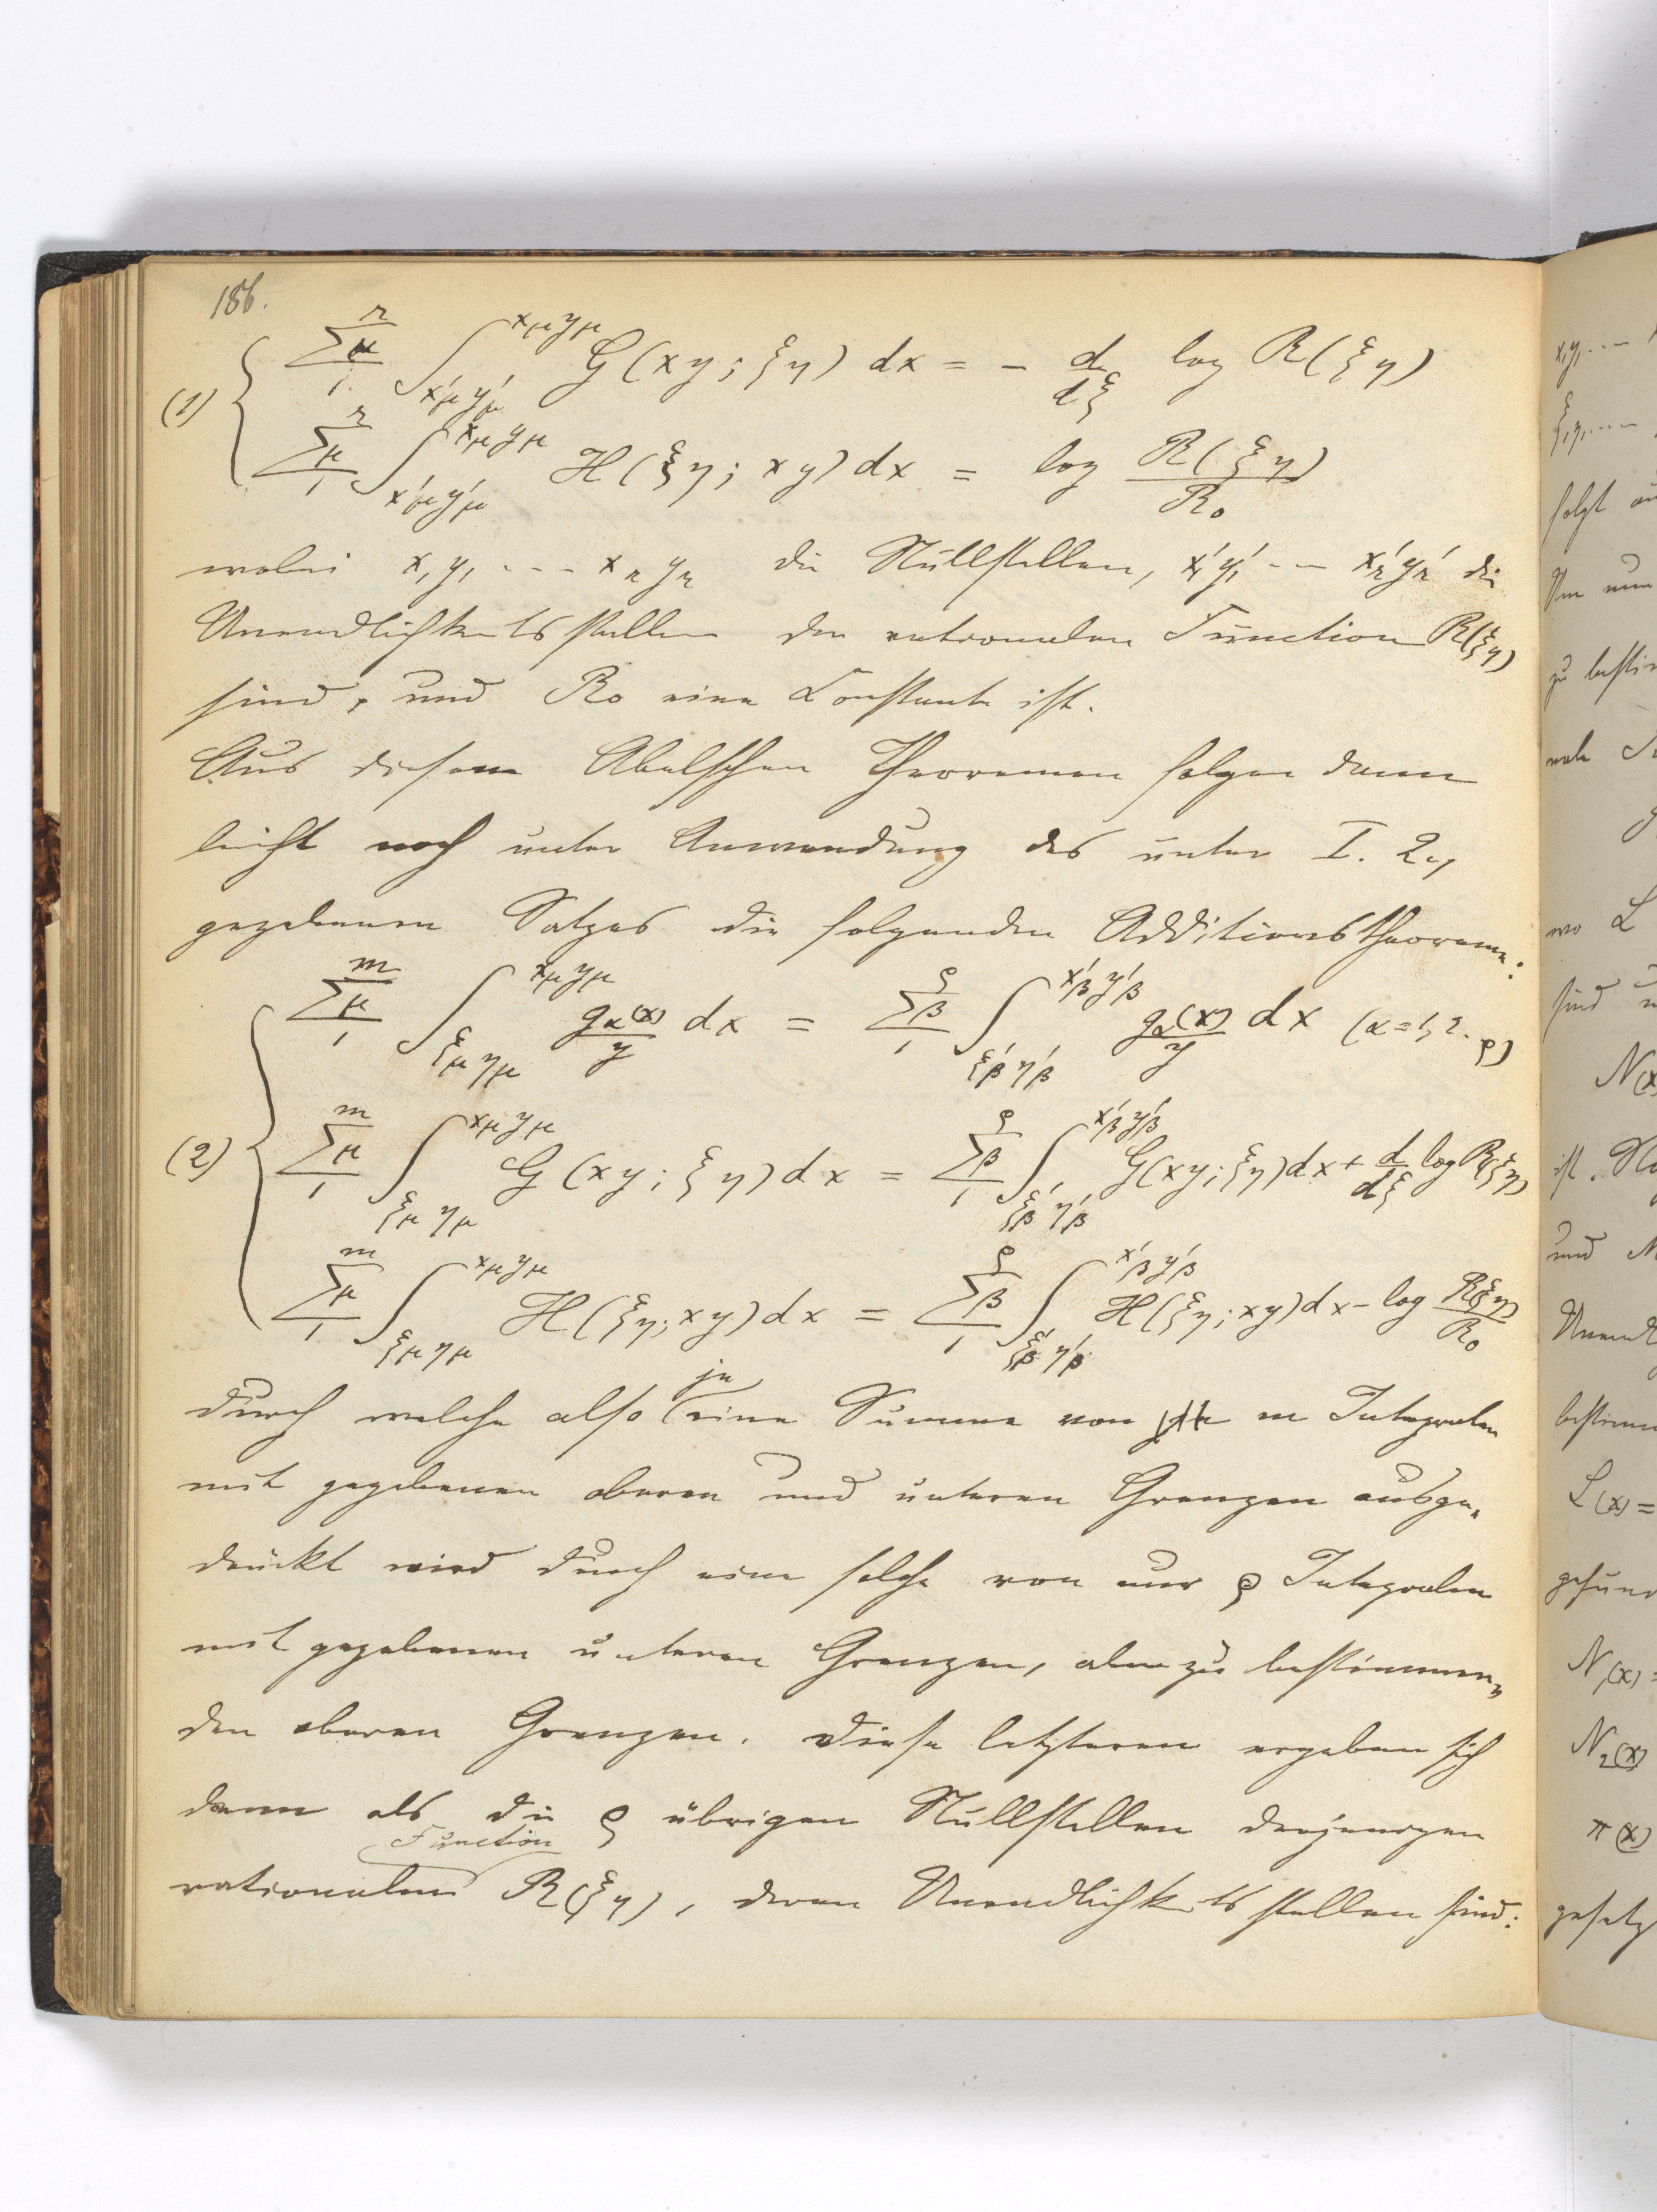 186.
(1) { \sum_{1}^{r}{}_{\mu} \int_{x'_\mu y'_\mu}^{x_\mu y_\mu} G(xy; ξη) dx = - \frac{d}{dξ} log R(ξη)
\sum_{1}^{r}{}_{\mu} \int_{x'_\mu y'_\mu}^{x_\mu y_\mu} H(ξη; xy) dx = log \frac{R(ξη)}{R_0}
wobei x_1 y_1 --- x_r y_r die Nullstellen, x'_1 y'_1 -- x'_r y'_r die
Unendlichkeitsstellen der rationalen Function R(ξη)
sind, und R_0 eine Constante ist.
Aus diesem Abelschen Theoremen folgen dann
leicht noch unter Anwendung des unter I. 2.,
gegebenen Satzes die folgenden Additionstheoreme:
(2) { \sum_{1}^{m}{}_{\mu} \int_{ξ_\mu η_\mu}^{x_\mu y_\mu} \frac{g_α(x)}{y} dx = \sum_{1}^{ρ}{}_{β} \int_{ξ'_β η'_β}^{x'_β y'_β} \frac{g_α(x)}{y} dx (α=1, 2.. ρ)
\sum_{1}^{m}{}_{\mu} \int_{ξ_\mu η_\mu}^{x_\mu y_\mu} G(xy; ξη) dx = \sum_{1}^{ρ}{}_{β} \int_{ξ'_β η'_β}^{x'_β y'_β} G(xy; ξη) dx + \frac{d}{dξ} log R(ξη)
\sum_{1}^{m}{}_{\mu} \int_{ξ_\mu η_\mu}^{x_\mu y_\mu} H(ξη; xy) dx = \sum_{1}^{ρ}{}_{β} \int_{ξ'_β η'_β}^{x'_β y'_β} H(ξη; xy) dx - log \frac{R(ξη)}{R_0}
durch welche also je eine Summe von m Integralen
mit gegebenen oberen und unteren Grenzen ausge-
drückt wird durch eine solche von nur ρ Integralen
mit gegebenen unteren Grenzen, aber zu bestimmen-
den oberen Grenzen. Diese letzteren ergeben sich
dann als die ρ übrigen Nullstellen derjenigen
rationalen Function R(ξη), deren Unendlichkeitsstellen sind:
x_1 y_1 ---
ξ_1 η_1 ---
folgt
Um nun
zu
wo L
sind
N(x
ist.
und
bestimm
L(x) =
N_1(x) =
N_2(x)
π(x)
gesetz